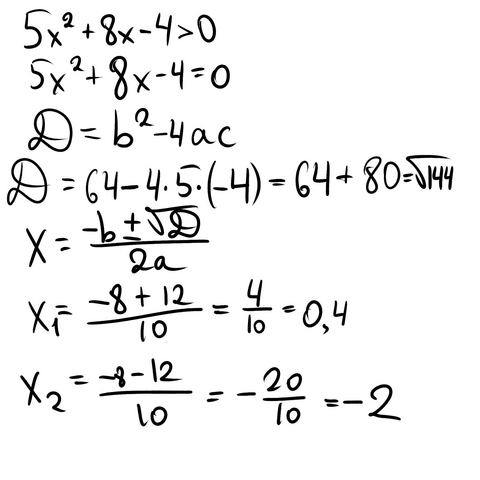 5x² + 8x - 4 > 0
5x² + 8x - 4 = 0
D = b² - 4ac
D = 64 - 4·5·(-4) = 64 + 80 = √144
X = (-b ± √D)/(2a)
X₁ = (-8 + 12)/10 = 4/10 = 0,4
X₂ = (-8 - 12)/10 = -20/10 = -2